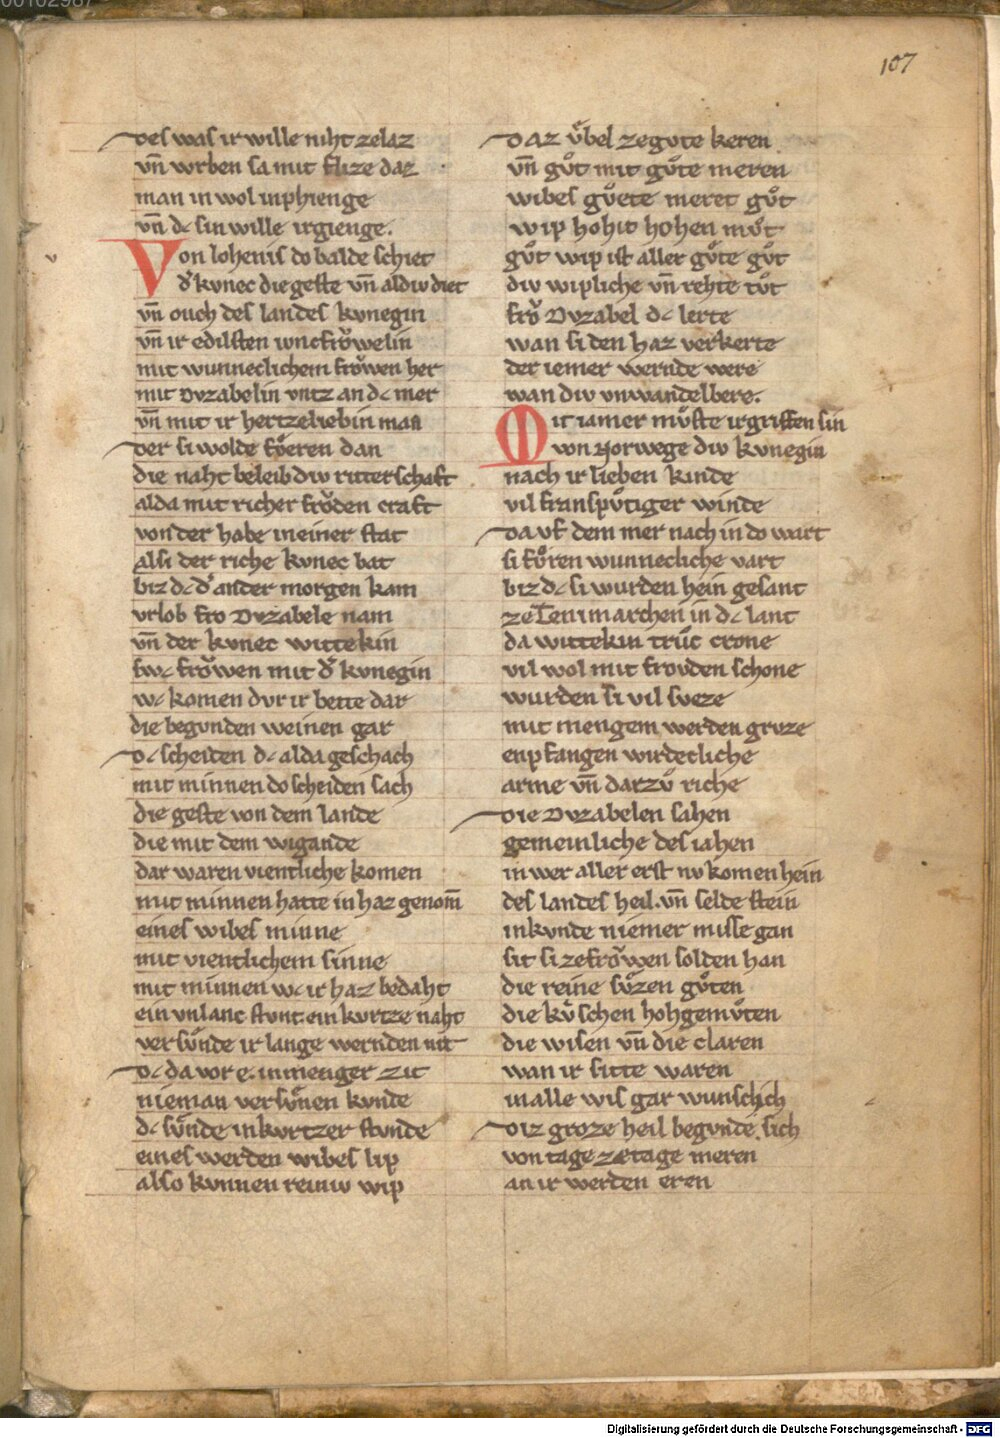 107
des was ir wille niht zelaz
vn̄ wrben sa mit flize daz
man in wol inphienge
vn̄ dc sin wille irgienge.
Von lohenis do balde schiet
dˢ kvnec die geste vn̄ al div diet
vn̄ ouch des landes kvnegin
vn̄ ir edilsten ivncfrowelin
mit wunneclichem frowen her
mit Dvzabelin vntz an dc mer
vn̄ mit ir hertzeliebin man
der si wolde fuͦren dan
die naht beleib div ritterschaft
alda mit richer froͮden craft
von der habe in einer stat
alsi der riche kvnec bat
biz dc dˢ ander morgen kam
vrlob fro Dvzabele nam
vn̄ der kvnec wittekin
swc froͮwen mit dˢ kvnegin
wc komen dvr ir bette dar
die begvnden weinen gar
dc scheiden dc alda geschach
mit minnen do scheiden sach
die geste von dem lande
die mit dem wigande
dar waren vientliche komen
mit minnen hatte in haz genom̄
eines wibes minne
mit vientlichem sinne
mit minnen wc ir haz bedaht
ein vnlanc stvnt. ein kvrtze naht
versuͦnde ir lange wernden nit
dc da vor e. in menger zit
nieman versuͦnen kvnde
dc suͦnde in kvrtzer stvnde
eines werden wibes lip
also kvnnen reiniv wip
daz vͤbel zegvte keren
vn̄ guͦt mit guͦte meren
wibes guͦete meret guͦt
wip hohit hohen muͦt
guͦt wip ist aller guͦte guͦt
div wipliche vn̄ rehte tuͦt
froͮ Dvzabel dc lerte
wan si den haz verkerte
der iemer wernde were
wan div vnwandelbere.
Mit iamer muͦste irgriffen sin
von Norwege div kvnegin
nach ir lieben kinde
vil franspuͦtiger winde
da vf dem mer nach in do wart
si fuͦren wunnecliche vart
biz dc si wurden hein gesant
ze Tenimarchen in dc lant
da wittekin truͦc crone
vil wol mit frouden schone
wurden si vil sveze
mit mengem werden grvze
enpfangen wirdecliche
arme vn̄ darzuͦ riche
die Dvzabelen sahen
gemeinliche des iahen
in wer aller erst nv komen hein
des landes heil. vn̄ selde stein
in kvnde niemer misse gan
sit si ze froͮwen solden han
die reine suͦzen guͦten
die kuͤschen hohgemuͦten
die wisen vn̄ die claren
wan ir sitte waren
in alle wis gar wunschich
diz groze heil begvnde sich
von tage ze tage meren
an ir werden eren
Digitalisierung gefördert durch die Deutsche Forschungsgemeinschaft - DFG